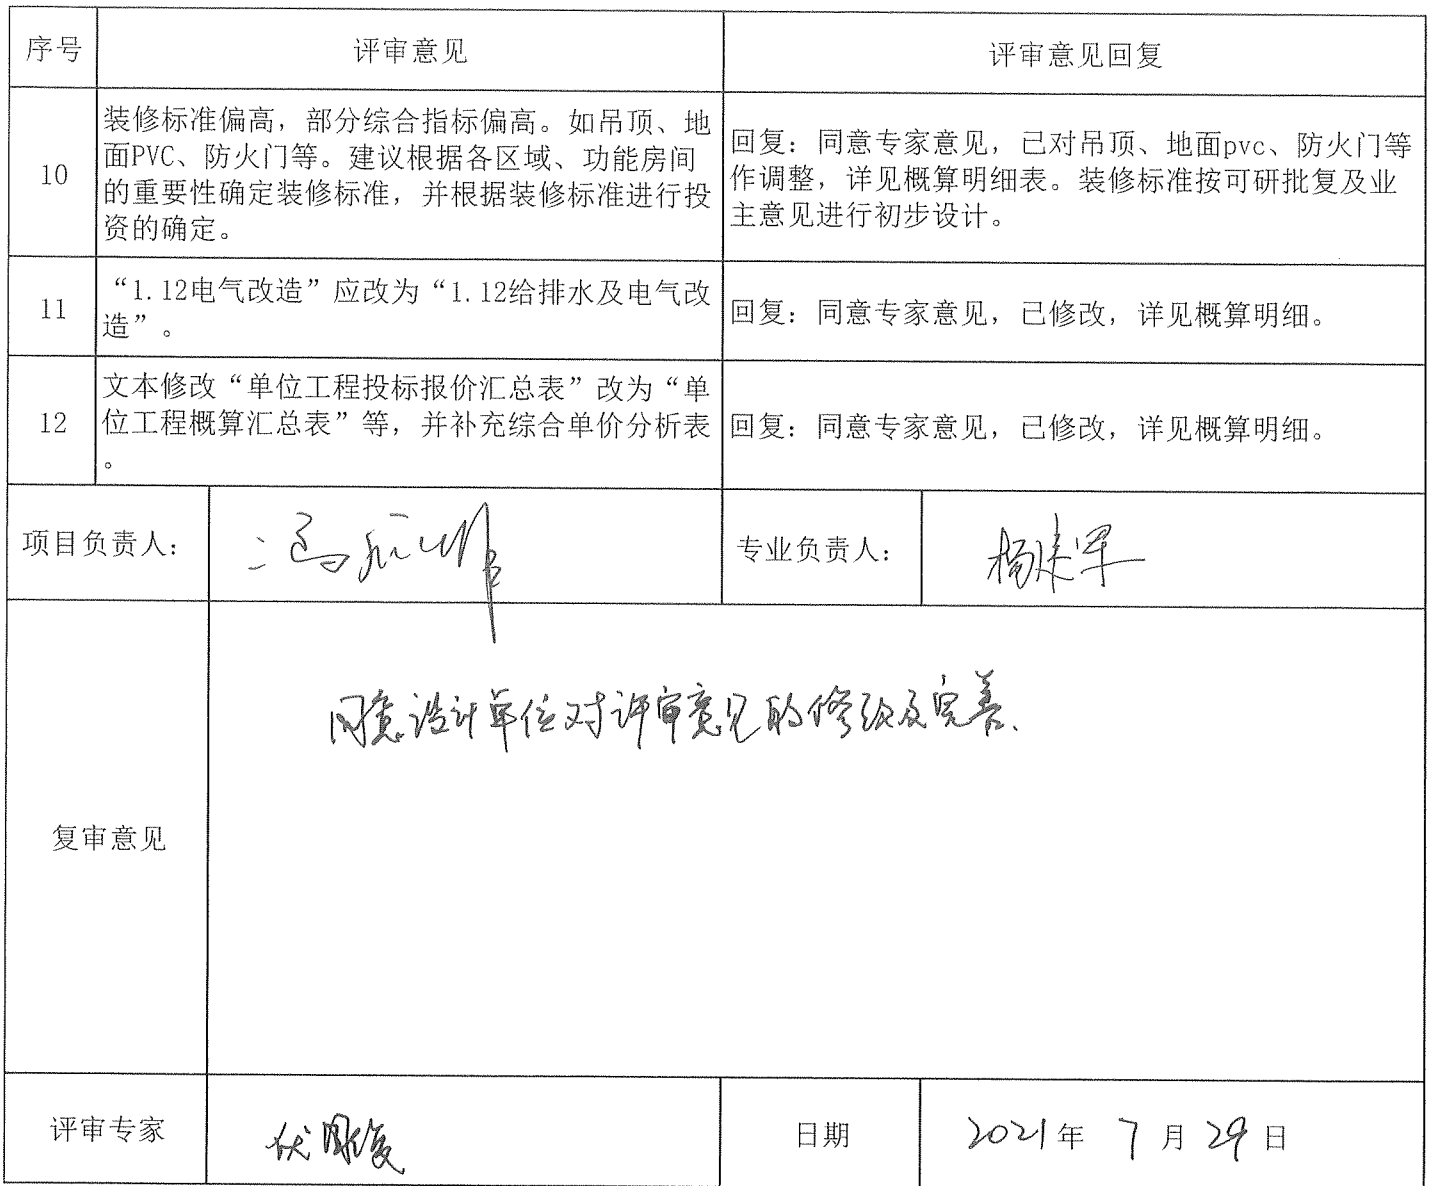 序号 评审意见 评审意见回复
10
装修标准偏高，部分综合指标偏高。如吊顶、地
面PVC、防火门等。建议根据各区域、功能房间
的重要性确定装修标准，并根据装修标准进行投
资的确定。
回复：同意专家意见，已对吊顶、地面pvc、防火门等
作调整，详见概算明细表。装修标准按可研批复及业
主意见进行初步设计。
11
“1.12电气改造”应改为“1.12给排水及电气改
造”。
回复：同意专家意见，已修改，详见概算明细。
12
文本修改“单位工程投标报价汇总表”改为“单
位工程概算汇总表”等，并补充综合单价分析表
。
回复：同意专家意见，已修改，详见概算明细。
项目负责人：
专业负责人：
复审意见
同意设计单位对评审意见的修改及完善.
评审专家
日期 2021年 7月29日